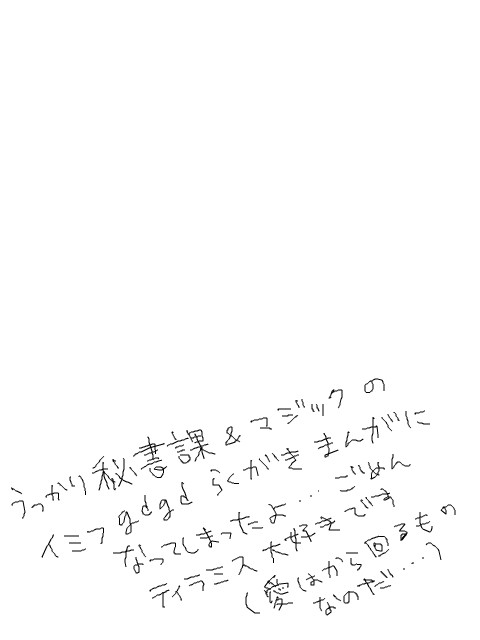 うっかり秘書課&マジックの
イミフgdgdらくがきまんがに
なってしまったよ…ごめん
ティラミス大好きです
(愛はから回るもの
なのだ…)